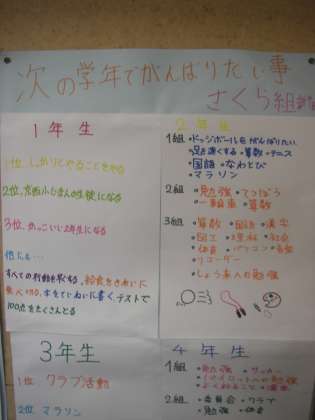 次の学年でがんばりたい事
さくら組
1年生
1位 しっかりとやることをやる
2位
の生徒になる
3位 かっこいい2年生になる
他にも…
すべての行動を早くする、給食をきれいに
食べ切る、本をていねいに書く、テストで
100点をたくさんとる
2年生
1組 •ドッジボールをがんばりたい
•足を速くする •算数 •テニス
•国語 •なわとび
•マラソン
2組 •勉強 •てつぼう
•一輪車 •算数
3組 •算数 •国語 •漢字
•図工 •理科 •社会
•体育 •パソコン •音楽
•リコーダー
•しょう来への勉強
3年生
1位 クラブ活動
2位 マラソン
4年生
1組 •勉強 •サッカー
2組 •委員会 •クラブ
•勉強 •体育